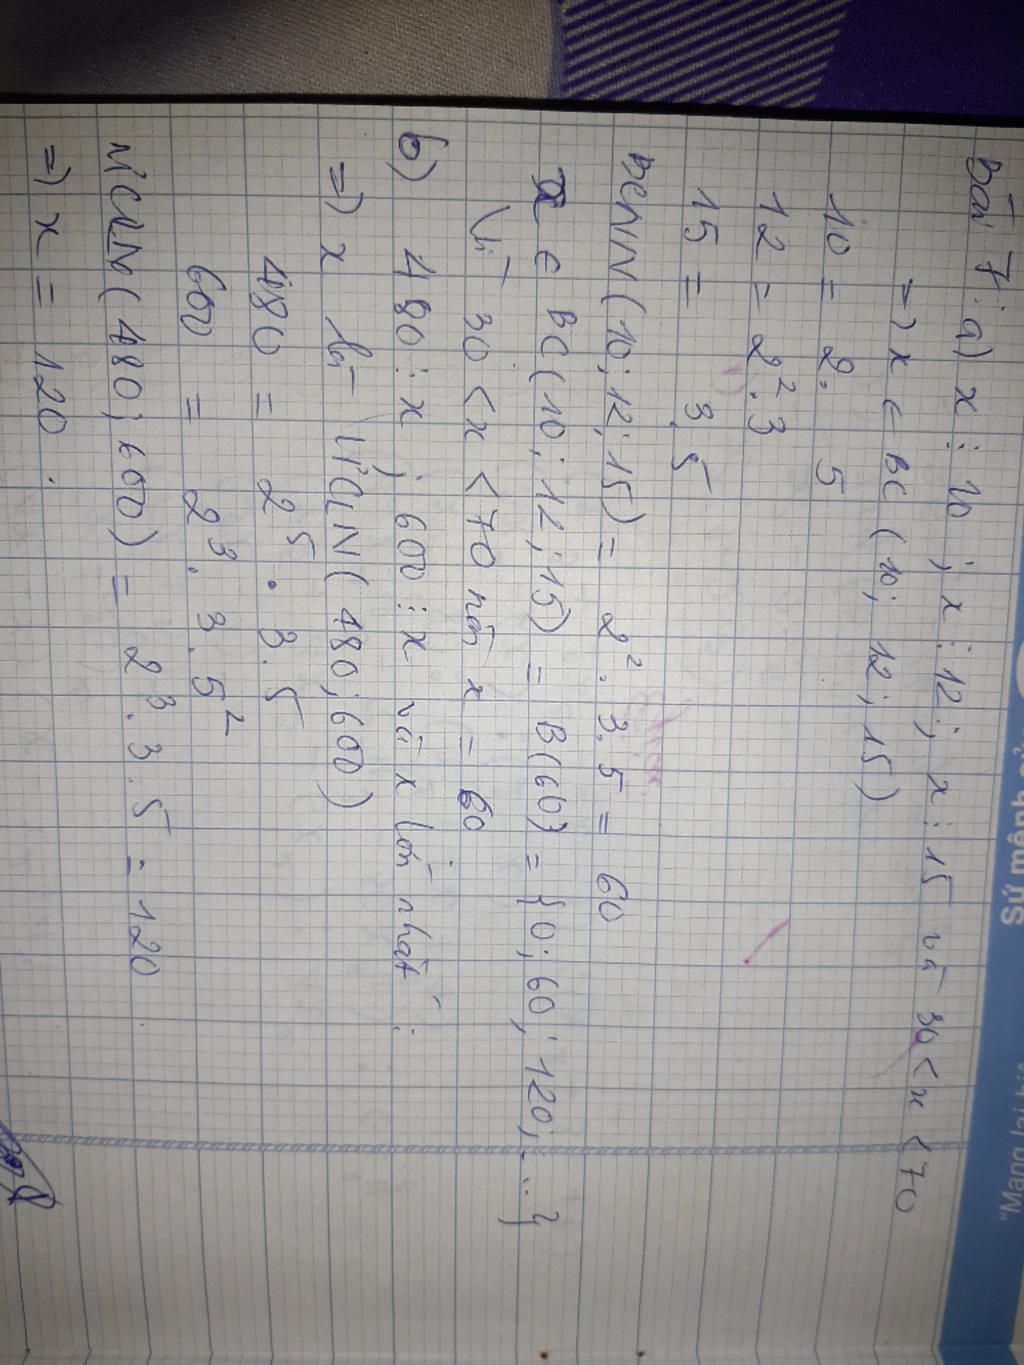 Sứ mệnh
"Mang lại
Bài 7: a) x ⋮ 10 ; x ⋮ 12 ; x ⋮ 15 và 30 < x < 70
=) x ∈ BC (10; 12; 15)
10 = 2. 5
12 = 2². 3
15 = 3.5
BCNN (10; 12; 15) = 2². 3. 5 = 60
x ∈ BC (10; 12; 15) = B(60) = {0; 60; 120; ...}
Vì 30 < x < 70 nên x = 60
b) 480 ⋮ x ; 600 ⋮ x và x lớn nhất :
=) x là ƯCLN (480; 600)
480 = 2⁵ . 3. 5
600 = 2³. 3. 5²
ƯCLN (480; 600) = 2³. 3. 5 = 120
=) x = 120.